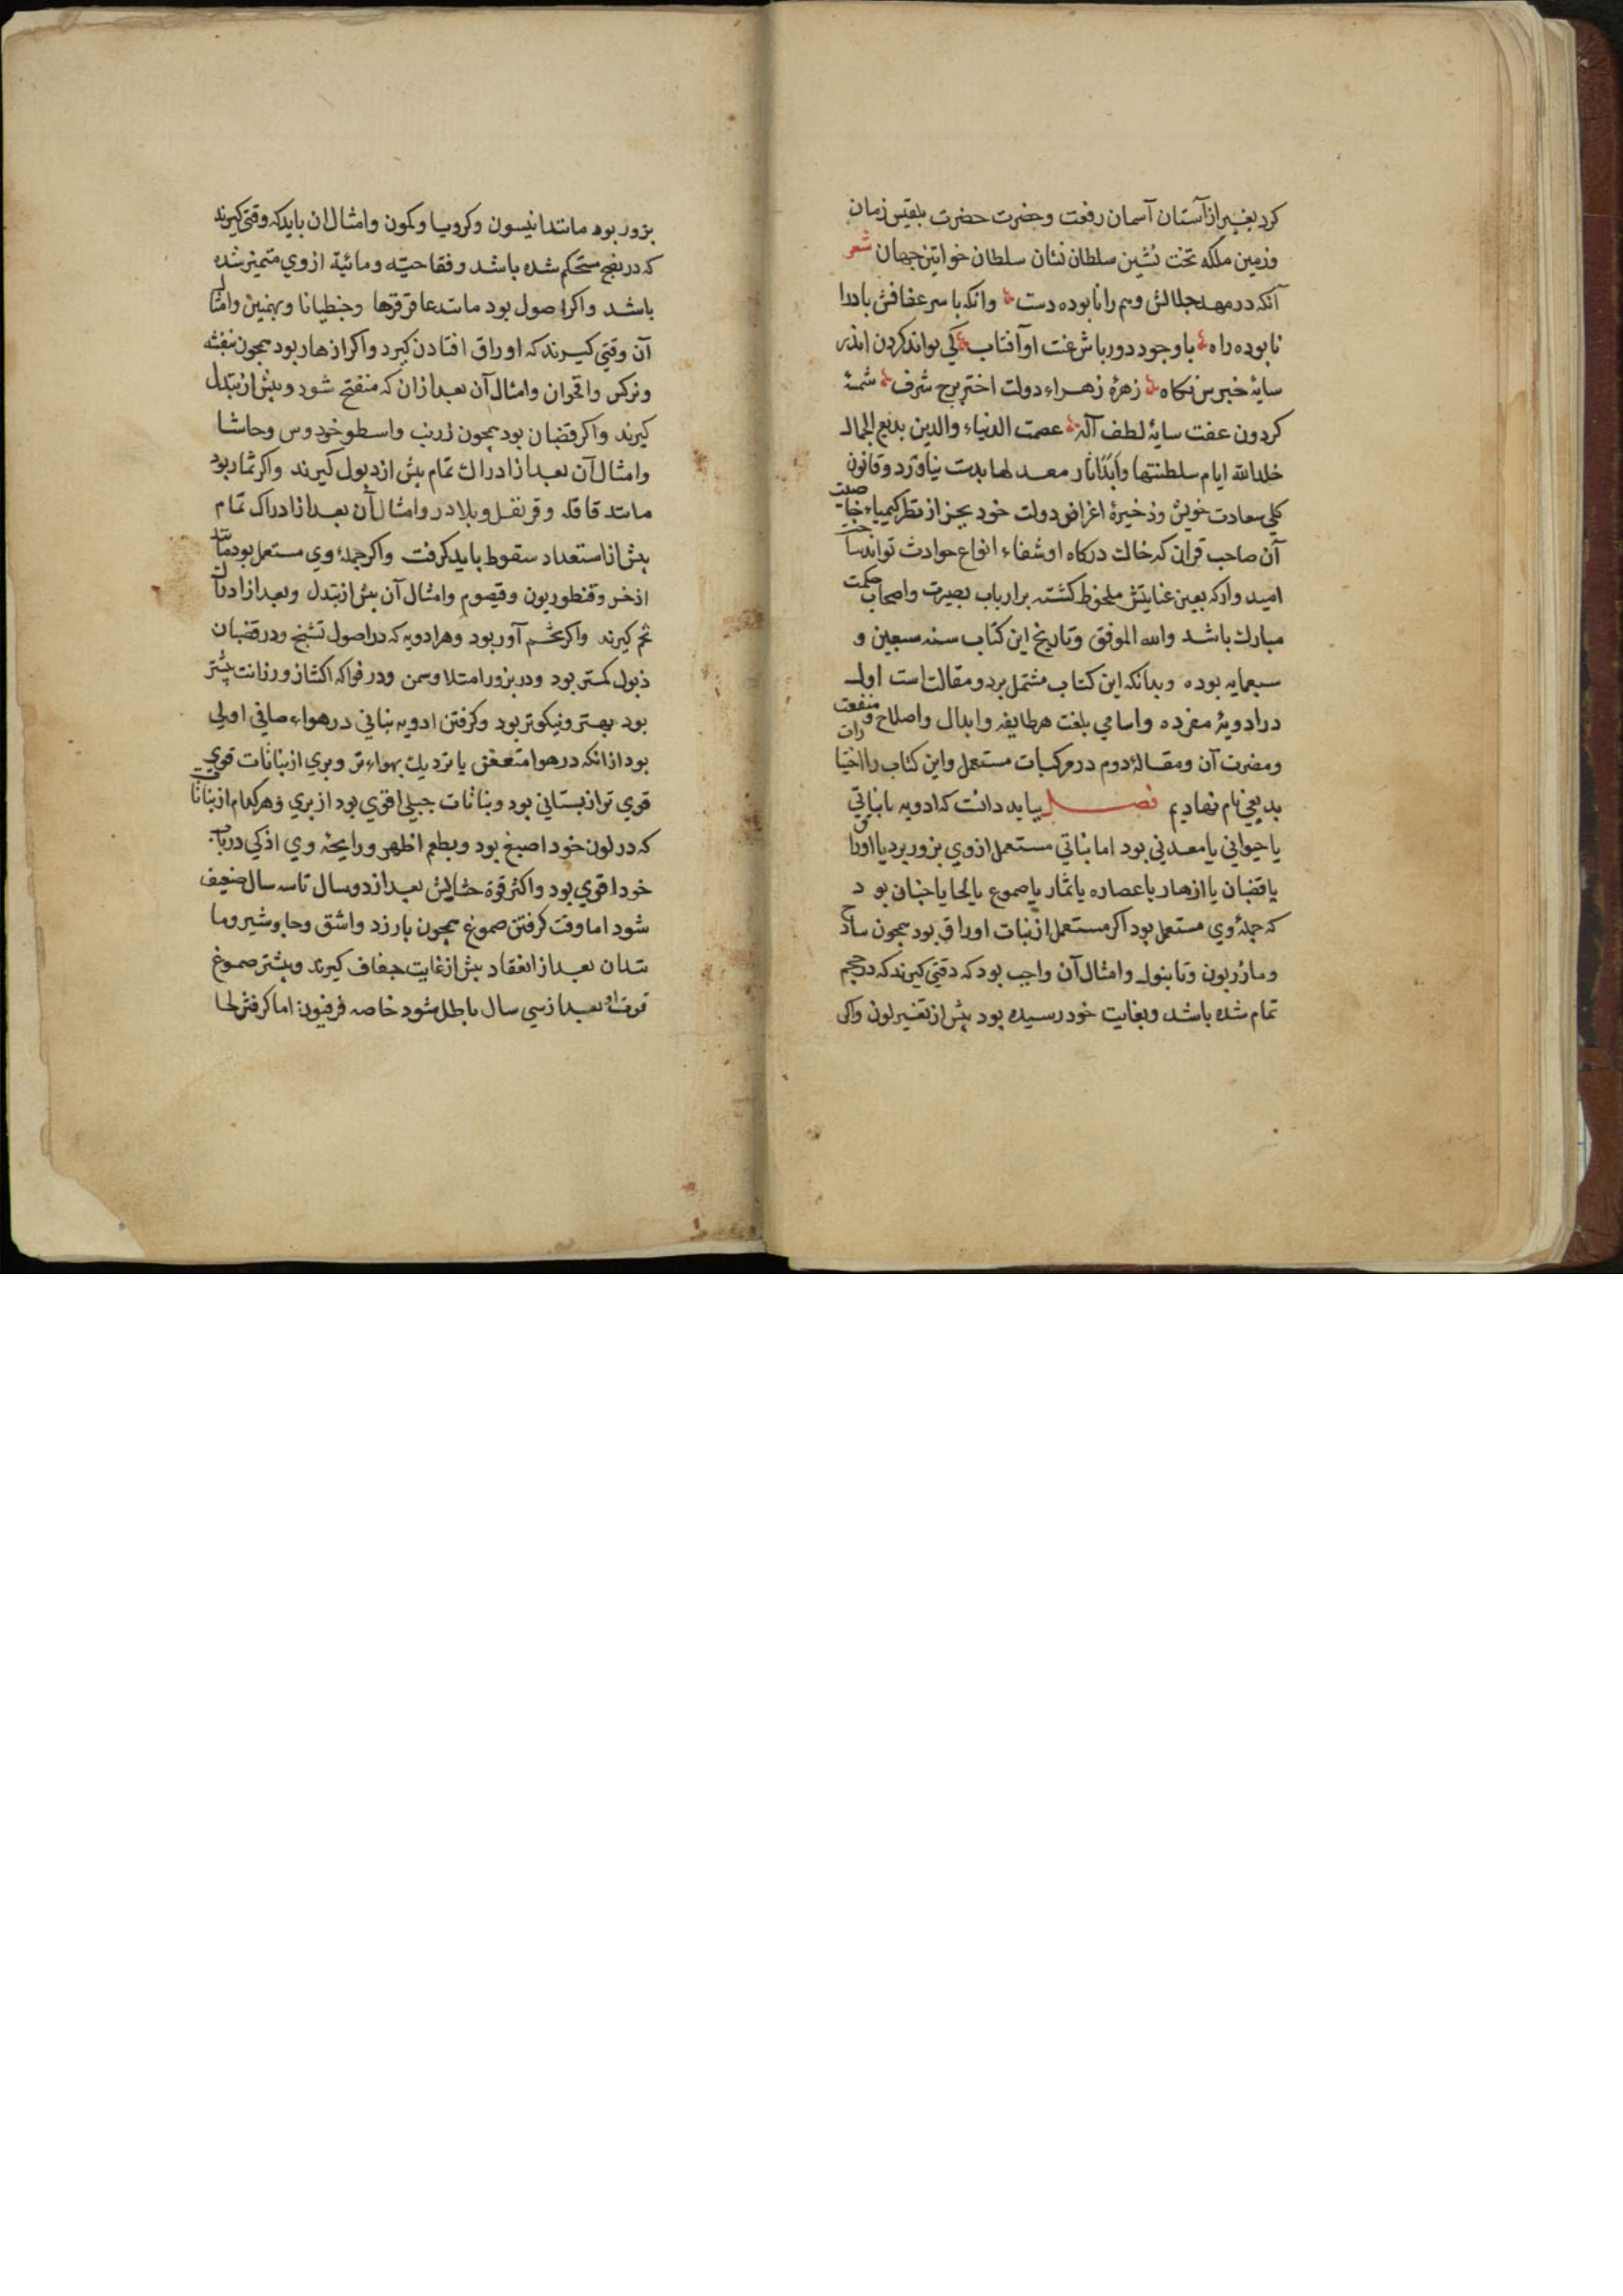 کرد بغیر از آستان آسمان رفعت و حضرت حضرت بلقیس زمان
و زمین ملکه تخت نشین سلطان نشان سلطان خواتین جهان شعر
آنکه در مهد جلالش وهم را نابوده دست وانکه با سر عفافش باد را
نابوده راه با وجود دور باش عفت او آفتاب کی تواند کردن اندر
سایهٔ خبرس نکاه زهرهٔ زهراء دولت اختر برج شرف شمسهٔ
کردون عفت سایهٔ لطف آله عصمت الدنیاء والدین بدیع الجمال
خلد الله ایام سلطنتها وابدًا آثار معد لها بدست نیاورد و قانون
کلی سعادت خویش و ذخیرهٔ اغراض دولت خود بجز از نظر کیمیاء خاصیت
آن صاحب قران که خاک درکاه او شفاء انواع حوادث تواند ساخت
امید وارکه بعین عنایتش ملحوظ کشته بر ارباب بصیرت واصحاب حکمت
مبارك باشد والله الموفق وتاریخ این کتاب سنه سبعین و
سبعمایه بوده وبدانکه این کتاب مشتمل بر دو مقالت است اول
در ادویهٔ مفرده واسامی بلغت هر طایفه وابدال واصلاح و منفعت
ومضرت آن ومقالهٔ دوم در مرکبات مستعمل واین کتاب را اختیارات
بدیعی نام نهادیم فصل بباید دانت که ادویه یا نباتی
یا حیوانی یا معدنی بود اما نباتی مستعمل از وی بزور برد یا اوراق
یا قضبان یا ازهار یا عصاره یا ثمار یا صموغ یا لحا یا جنان بود
که جملهٔ وی مستعمل بود اکر مستعمل از نبات اوراق بود همچون سادج
ومازریون وتانبول وامثال آن واجب بود که وقتی کیرند که در حجم
تمام شده باشد وبغایت خود رسیده بود پیش از تغییر لون واکر
بزور بود مانند انیسون وکرویا وکمون وامثال ان باید که وقتی کیرند
که در نضج مستحکم شده باشد وفقاحیّه ومائیة از وی متمیز شده
باشد واکر اصول بود مانند عاقرقرها وجنطیانا وبهمنین وامثال
آن وقتی کیرند که اوراق افتادن کیرد واکر ازهار بود همچون بنفشه
ونرکس واقحوان وامثال آن بعد از ان که منفتح شود وپیش از تبدل
کیرند واکر قضبان بود همچون زرنب واسطوخودوس وحاشا
وامثال آن بعد از ادراك تمام پیش از ذبول کیرند واکر ثمار بود
مانند قاقله وقرنفل وبلادر وامثال آن بعد از ادراک تمام
پیش از استعداد سقوط باید کرفت واکر جملهٔ وی مستعمل بود مانند
اذخر وقنطوریون وقیصوم وامثال آن پیش از تبدل وبعد از ادراك
تخم کیرند واکر تخم آور بود وهر ادویه که در اصول تشنج ودر قضبان
ذبول کمتر بود ودر بزور امتلا وسمن ودر فواکه اکتناز ورزانت پیشتر
بود بهتر ونیکوتر بود وکرفتن ادویه نباتی در هواء صافی اولی
بود از انکه در هوا متعفن یا نزدیك بهواء تر وبری از نباتات قوی
قوی تر از بستانی بود ونباتات جبلی اقوی بود از بری وهرکدام از نباتاتی
که در لون خود اصبغ بود وبطعم اظهر ورایحه وی اذکی در باب
خود اقوی بود واکثر قوة حشایش بعد از دو سال تا سه سال ضعیف
شود اما وقت کرفتن صموغ همچون بارزد واشق وجاوشیر وما
نندان بعد از انعقاد پیش از غایت جفاف کیرند وبیشتر صموغ
قوت او بعد از سی سال باطل شود خاصه فرفیون اما کرفتن لحا